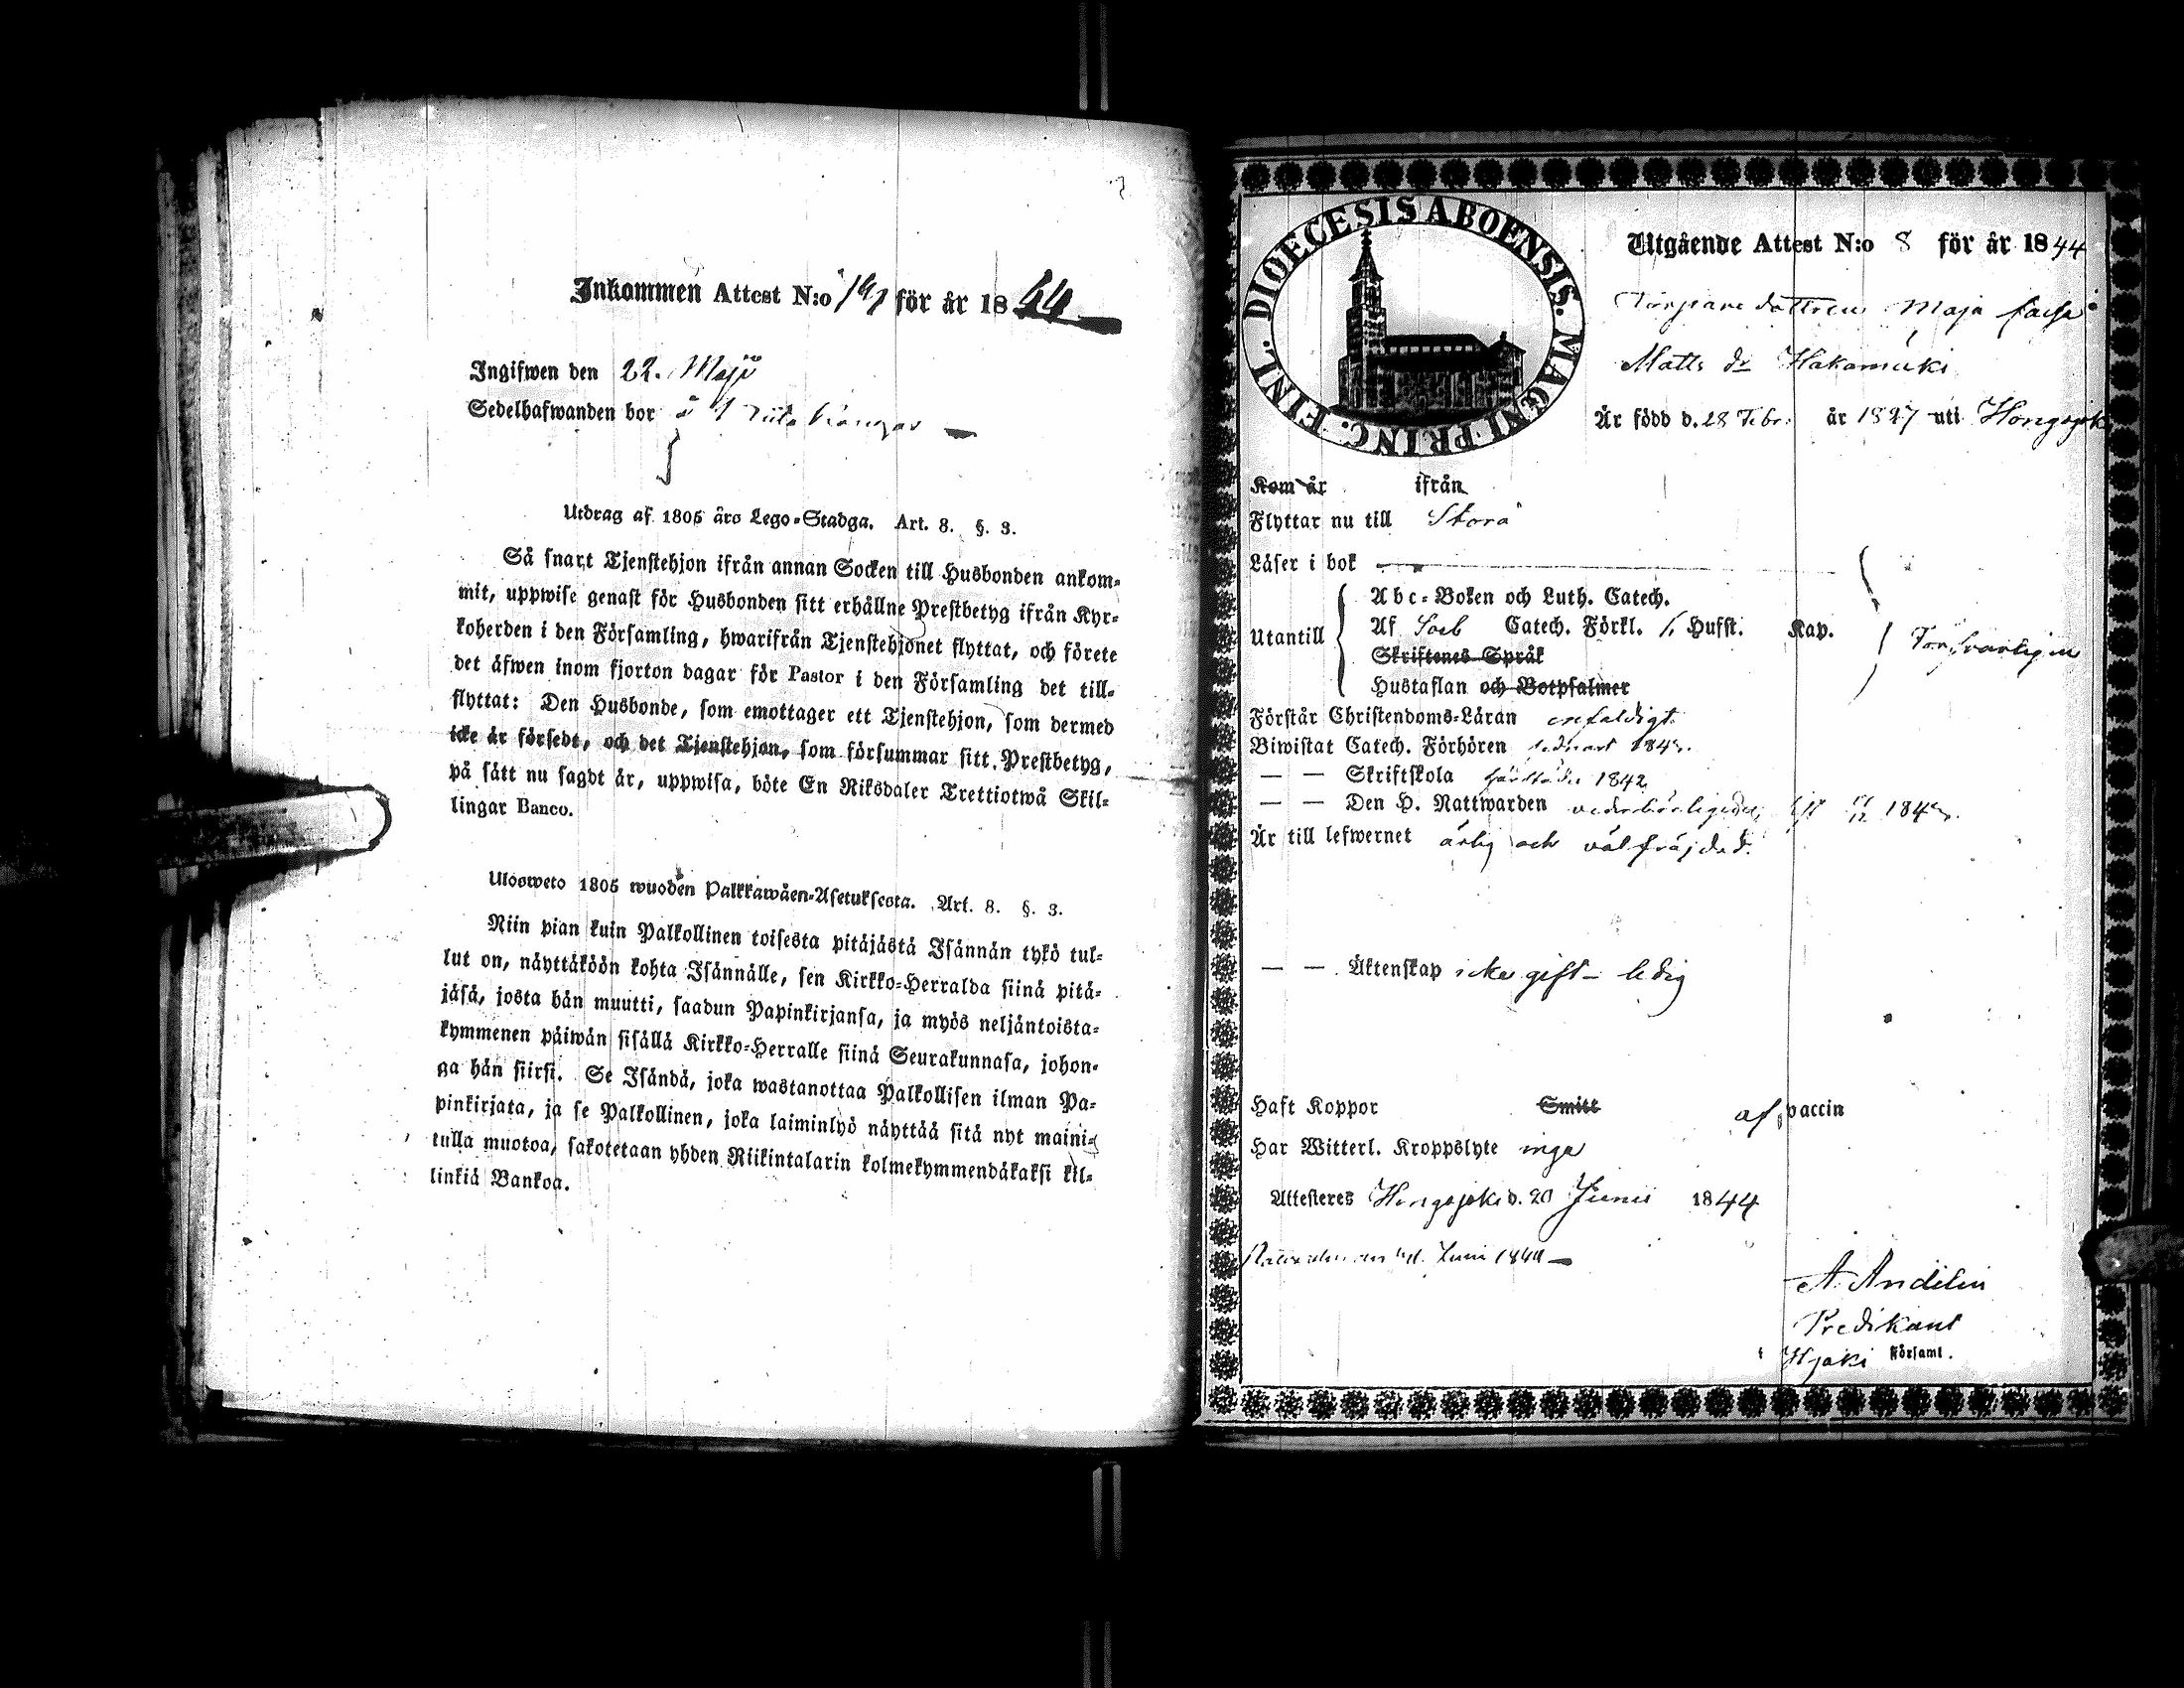 Inkommen Attest N:o för år 1844
Ingifwen den 22. Maji
Sedelhafwanden bor å
Utdrag af 1805 års Lego-Stadga. Art. 8. §. 3.
Så snart Tjenstehjon ifrån annan Socken till Husbonden ankom-
mit, uppwise genast för Husbonden sitt erhållne Prestbetyg ifrån Kyr-
koherden i den Församling, hwarifrån Tjenstehjonet flyttat, och förete
det äfwen inom fjorton dagar för Pastor i den Församling det till-
flyttat: Den Husbonde, som emottager ett Tjenstehjon, som dermed
icke är försedt, och det Tjenstehjon, som försummar sitt Prestbetyg,
på sätt nu sagdt är, uppwisa, böte En Riksdaler Trettiotwå Skil-
lingar Banco.
Ulosweto 1805 wuoden Palkkawäen-Asetuksesta. Art. 8. §. 3.
Niin pian kuin Palkollinen toisesta pitäjästä Isännän tykö tul-
lut on, näyttäköön kohta Isännälle, sen Kirkko-Herralda siinä pitä-
jäsä, josta hän muutti, saadun Papinkirjansa, ja myös neljäntoista-
kymmenen päiwän sisällä Kirkko-Herralle siinä Seurakunnasa, johon-
ga hän siirsi. Se Isändä, joka wastanottaa Palkollisen ilman Pa-
pinkirjata, ja se Palkollinen, joka laiminlyö näyttää sitä nyt maini-
tulla muotoa, sakotetaan yhden Riikintalarin kolmekymmendäkaksi kil-
linkiä Bankoa.
DIOECESIS ABOENSIS. MAGNI PRINC. FINL.
Utgående Attest N:o 8 för år 1844
Torpare dottren Maja Caisa
Matts dr Hakamäki
Är född d. 28 Febr. år 1827 uti Hongojoki
Kom år ifrån
Flyttar nu till Storå
Läser i bok
Utantill
Abc-Boken och Luth. Catech.
Af Sveb Catech. Förkl. Husst. Kap.
Skriftenes Språk
Hustaflan och Botpsalmer
Försvarligen
Förstår Christendoms-Läran enfaldigt.
Biwistat Catech. Förhören
— — Skriftskola 1842
— — Den H. Nattwarden
Är till lefwernet ärlig och välfräjdad.
— — Äktenskap icke gift - ledig
Haft Koppor Smitt af vaccin
Har Witterl. Kroppslyte inga
Attesteres Hongojoki d. 20 Junii 1844
Juni 1844
A. Andelin
Predikant
i Hjoki Församl.